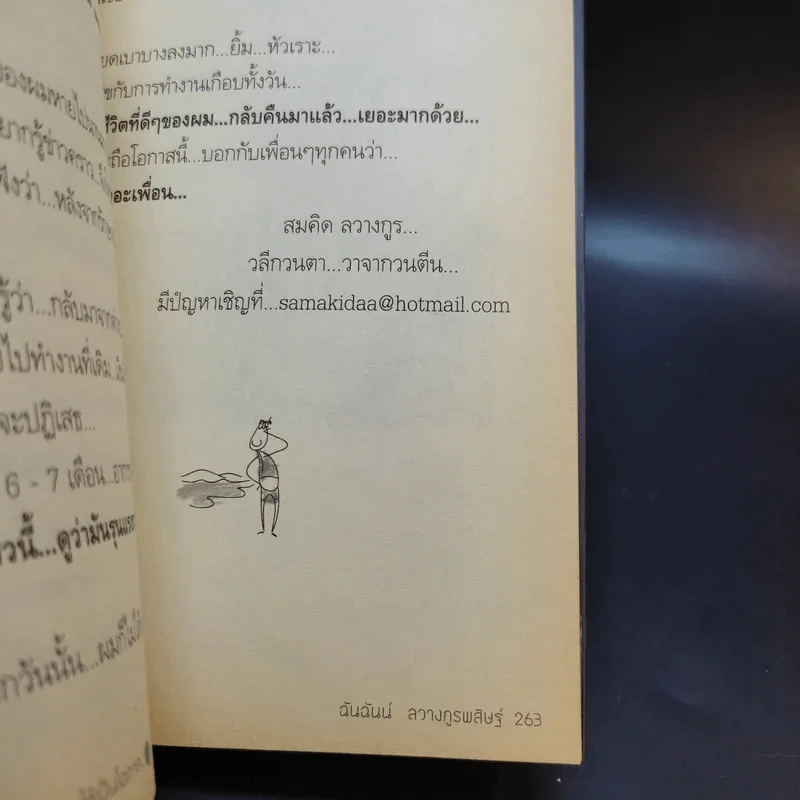 ของผมหายไป
ยากรู้ข่าวคราว
ฟังว่า...หลังจาก
รู้ว่า...กลับมาจาก
ไปทำงานที่เดิม...
จะปฏิเสธ...
6 - 7 เดือน...
วนี้...ดูว่ามันรุนแรง
กวันนั้น...ผมก็ไม่
ยดเบาบางลงมาก...ยิ้ม...หัวเราะ...
ขกับการทำงานเกือบทั้งวัน...
ชีวิตที่ดีๆของผม...กลับคืนมาแล้ว...เยอะมากด้วย...
ถือโอกาสนี้...บอกกับเพื่อนๆทุกคนว่า...
อะเพื่อน...
สมคิด ลวางกูร...
วลีกวนตา...วาจากวนตีน...
มีปัญหาเชิญที่...samakidaa@hotmail.com
ฉันฉันน์ ลวางกูรพสิษฐ์ 263